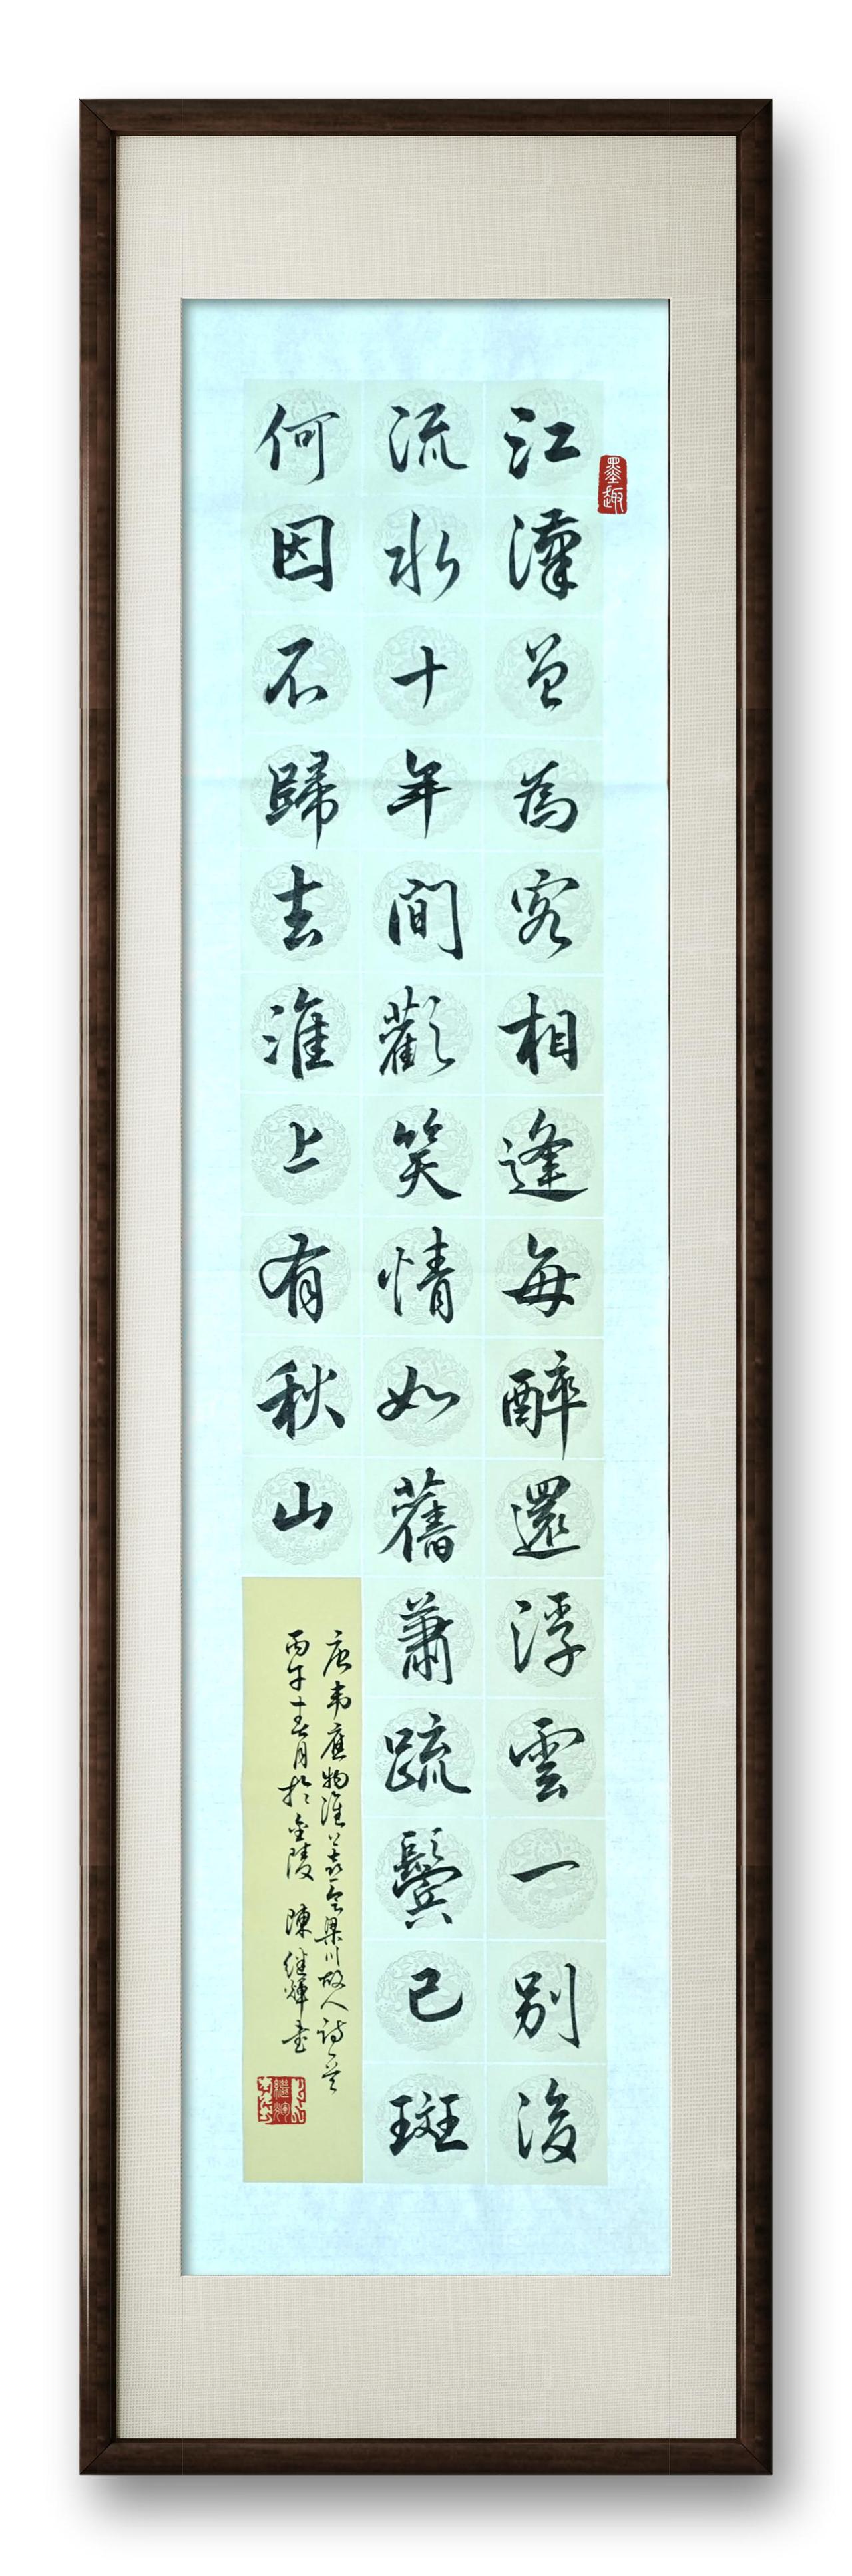 江漢曾為客相逢每醉還浮雲一別後
流水十年間歡笑情如舊蕭疏鬢已斑
何因不歸去淮上有秋山
唐韦應物淮上喜會梁川故人詩一首
丙午十二月於金陵 陳继輝书
墨趣